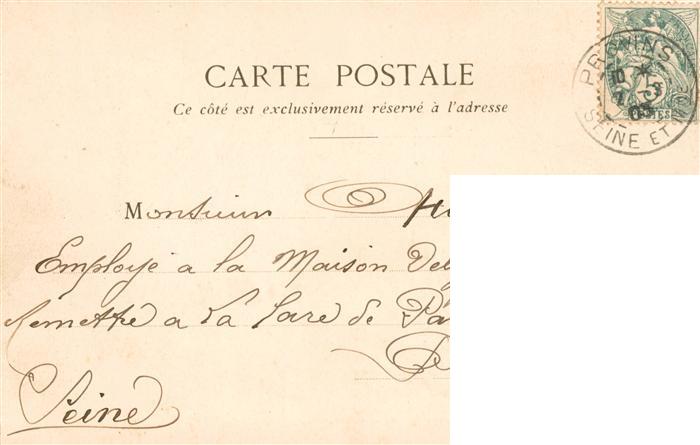 CARTE POSTALE
Ce côté est exclusivement réservé à l'adresse
PROVINS
SEINE ET
POSTES
Monsieur
Employé a la Maison
Remettre a la Gare de
Seine